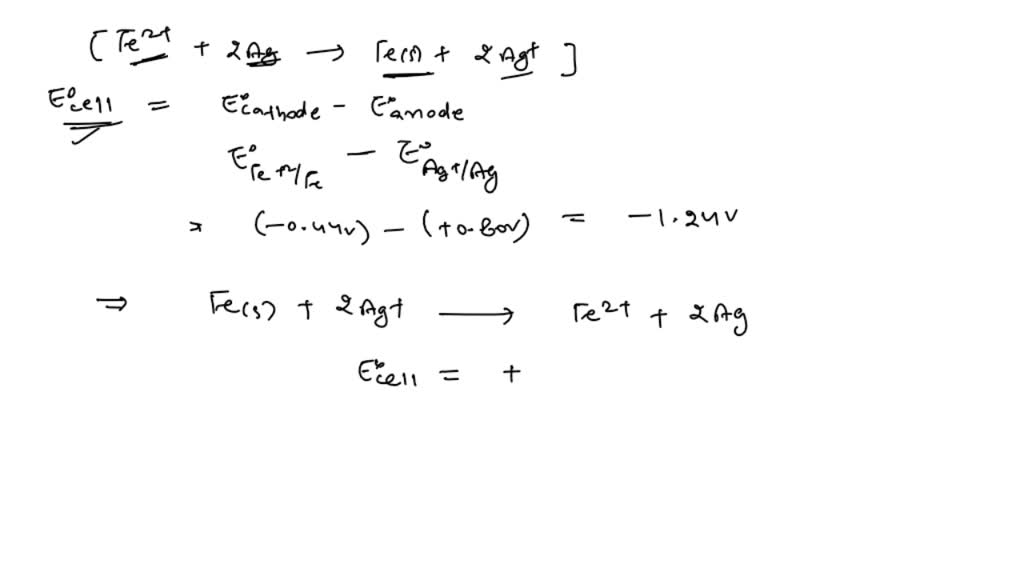 [Fe²⁺ + 2Ag → Fe(s) + 2Ag⁺]
E°cell = E°cathode - E°anode
E°Fe⁺²/Fe - E°Ag⁺/Ag
= (-0.44v) - (+0.80v) = -1.24v
⇒ Fe(s) + 2Ag⁺ → Fe²⁺ + 2Ag
E°cell = +